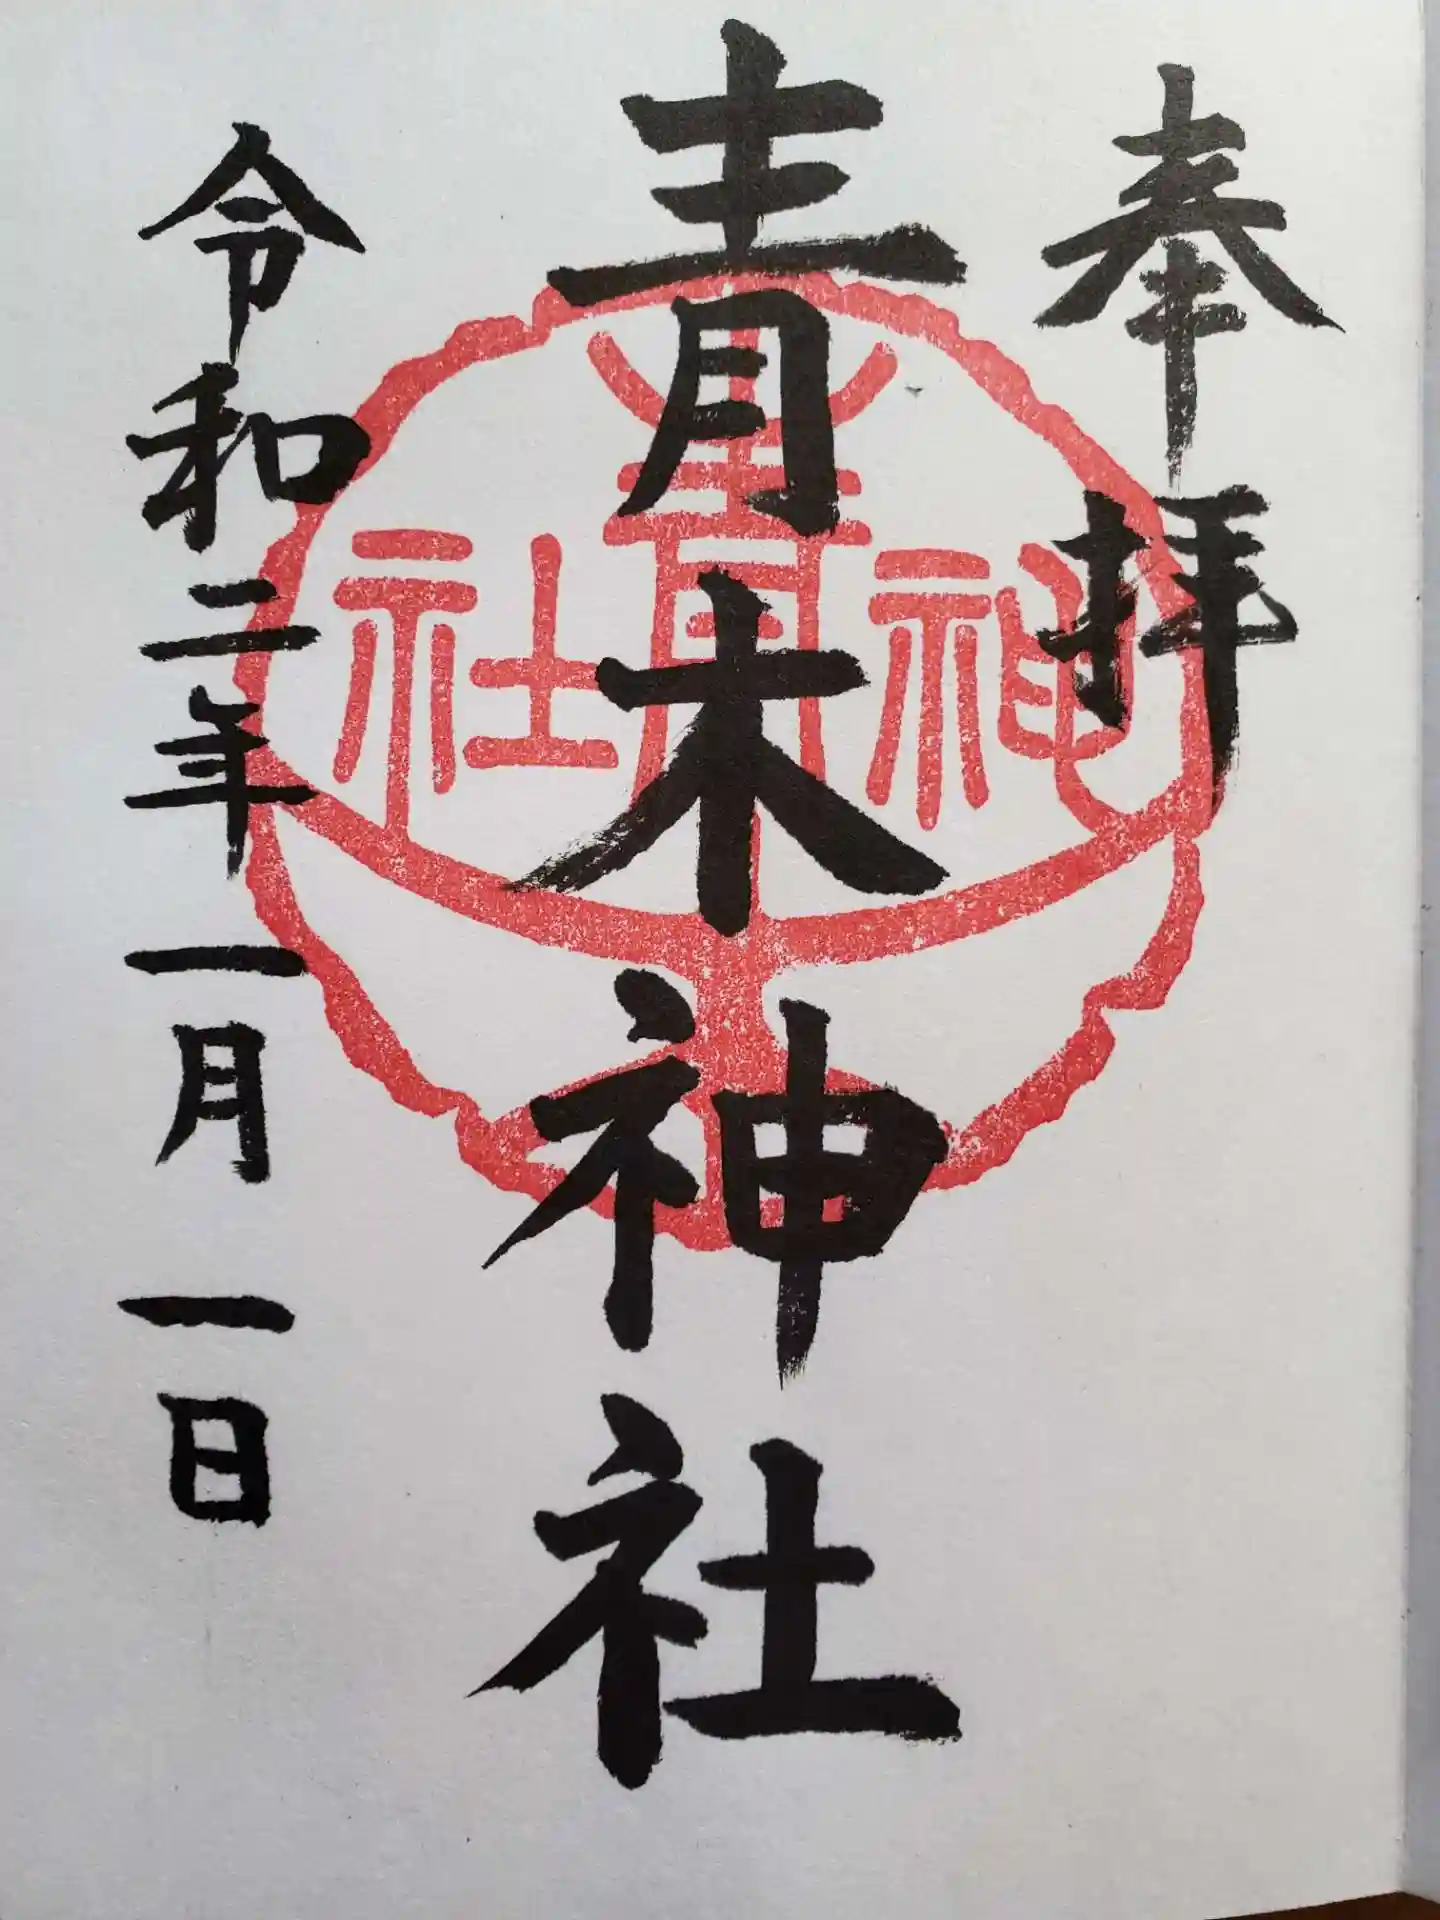 奉拝
青木神社
令和二年一月一日
青木神社